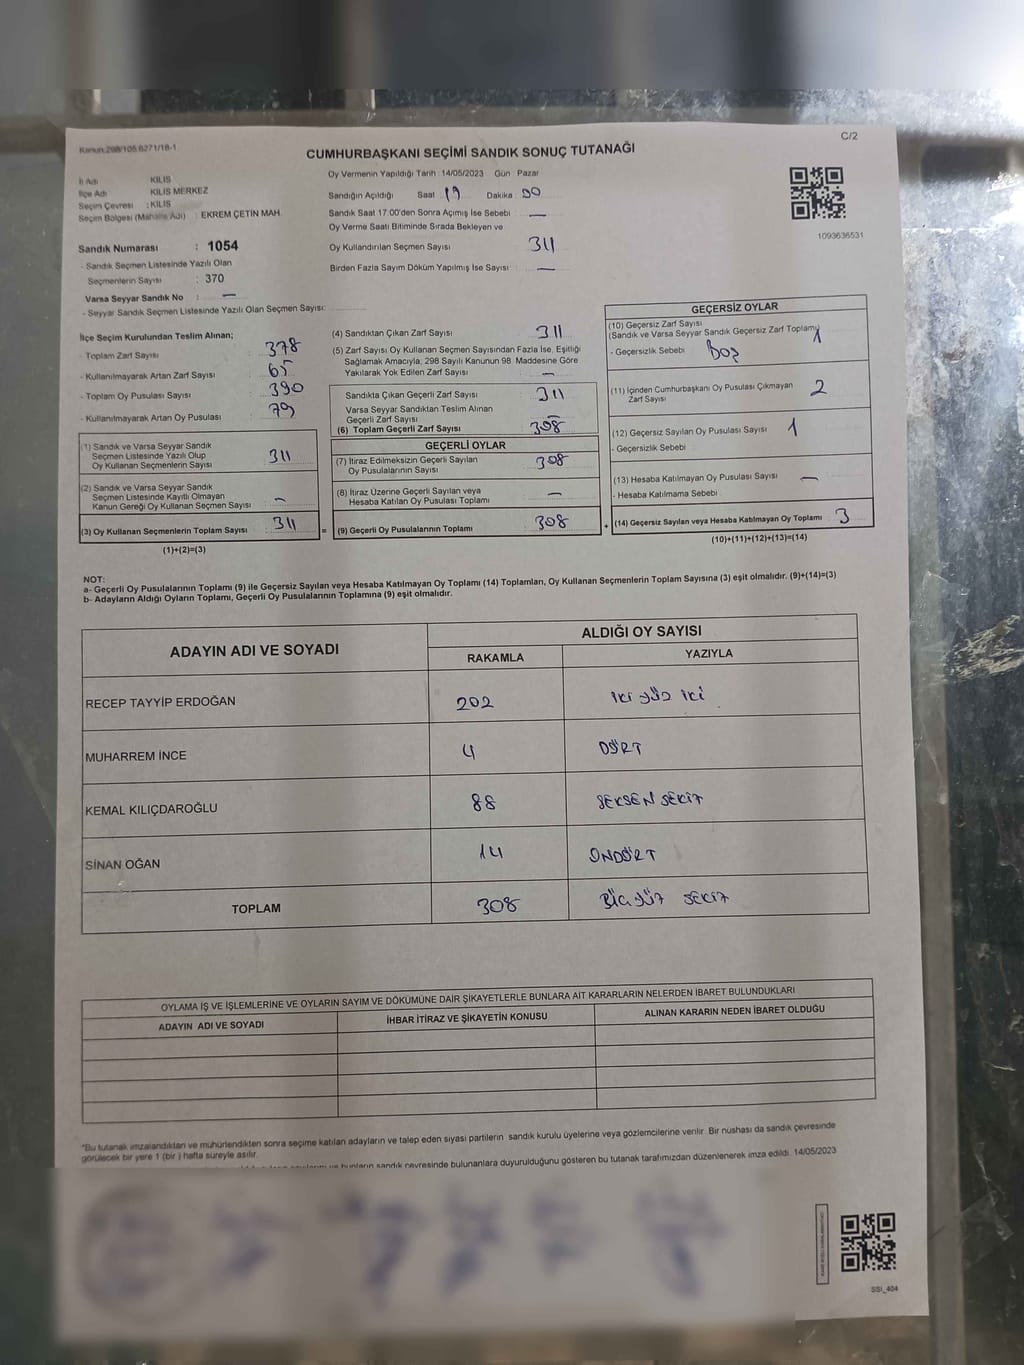 Kanun:298/105 6271/18-1
C/2
CUMHURBAŞKANI SEÇİMİ SANDIK SONUÇ TUTANAĞI
İl Adı : KİLİS
İlçe Adı : KİLİS MERKEZ
Seçim Çevresi : KİLİS
Seçim Bölgesi (Mahalle Adı) : EKREM ÇETİN MAH.
Sandık Numarası : 1054
- Sandık Seçmen Listesinde Yazılı Olan
Seçmenlerin Sayısı : 370
Varsa Seyyar Sandık No : —
- Seyyar Sandık Seçmen Listesinde Yazılı Olan Seçmen Sayısı:
Oy Vermenin Yapıldığı Tarih 14/05/2023 Gün Pazar
Sandığın Açıldığı Saat 19 Dakika : 00
Sandık Saat 17:00'den Sonra Açımış İse Sebebi : —
Oy Verme Saati Bitiminde Sırada Bekleyen ve
Oy Kullandırılan Seçmen Sayısı 311
Birden Fazla Sayım Döküm Yapılmış İse Sayısı : —
1093636531
İlçe Seçim Kurulundan Teslim Alınan;
- Toplam Zarf Sayısı : 378
- Kullanılmayarak Artan Zarf Sayısı : 65
- Toplam Oy Pusulası Sayısı : 390
- Kullanılmayarak Artan Oy Pusulası : 79
(1) Sandık ve Varsa Seyyar Sandık
Seçmen Listesinde Yazılı Olup
Oy Kullanan Seçmenlerin Sayısı 311
(2) Sandık ve Varsa Seyyar Sandık
Seçmen Listesinde Kayıtlı Olmayan
Kanun Gereği Oy Kullanan Seçmen Sayısı —
(3) Oy Kullanan Seçmenlerin Toplam Sayısı 311
(1)+(2)=(3)
(4) Sandıktan Çıkan Zarf Sayısı : 311
(5) Zarf Sayısı Oy Kullanan Seçmen Sayısından Fazla İse, Eşitliği
Sağlamak Amacıyla, 298 Sayılı Kanunun 98. Maddesine Göre
Yakılarak Yok Edilen Zarf Sayısı : —
Sandıkta Çıkan Geçerli Zarf Sayısı : 311
Varsa Seyyar Sandıktan Teslim Alınan
Geçerli Zarf Sayısı : —
(6) Toplam Geçerli Zarf Sayısı : 308
GEÇERLİ OYLAR
(7) İtiraz Edilmeksizin Geçerli Sayılan
Oy Pusulalarının Sayısı : 308
(8) İtiraz Üzerine Geçerli Sayılan veya
Hesaba Katılan Oy Pusulası Toplamı —
(9) Geçerli Oy Pusulalarının Toplamı 308
GEÇERSİZ OYLAR
(10) Geçersiz Zarf Sayısı
(Sandık ve Varsa Seyyar Sandık Geçersiz Zarf Toplamı) 1
- Geçersizlik Sebebi : Boş
(11) İçinden Cumhurbaşkanı Oy Pusulası Çıkmayan
Zarf Sayısı 2
(12) Geçersiz Sayılan Oy Pusulası Sayısı : 1
- Geçersizlik Sebebi
(13) Hesaba Katılmayan Oy Pusulası Sayısı : —
- Hesaba Katılmama Sebebi
(14) Geçersiz Sayılan veya Hesaba Katılmayan Oy Toplamı 3
(10)+(11)+(12)+(13)=(14)
NOT:
a- Geçerli Oy Pusulalarının Toplamı (9) ile Geçersiz Sayılan veya Hesaba Katılmayan Oy Toplamı (14) Toplamları, Oy Kullanan Seçmenlerin Toplam Sayısına (3) eşit olmalıdır. (9)+(14)=(3)
b- Adayların Aldığı Oyların Toplamı, Geçerli Oy Pusulalarının Toplamına (9) eşit olmalıdır.
ADAYIN ADI VE SOYADI ALDIĞI OY SAYISI
RAKAMLA YAZIYLA
RECEP TAYYİP ERDOĞAN 202 iki yüz iki
MUHARREM İNCE 4 DÖRT
KEMAL KILIÇDAROĞLU 88 SEKSEN SEKİZ
SİNAN OĞAN 14 ONDÖRT
TOPLAM 308 ÜÇ YÜZ SEKİZ
OYLAMA İŞ VE İŞLEMLERİNE VE OYLARIN SAYIM VE DÖKÜMÜNE DAİR ŞİKAYETLERLE BUNLARA AİT KARARLARIN NELERDEN İBARET BULUNDUKLARI
ADAYIN ADI VE SOYADI İHBAR İTİRAZ VE ŞİKAYETİN KONUSU ALINAN KARARIN NEDEN İBARET OLDUĞU
*Bu tutanak imzalandıktan ve mühürlendikten sonra seçime katılan adayların ve talep eden siyasi partilerin sandık kurulu üyelerine veya gözlemcilerine verilir. Bir nüshası da sandık çevresinde
görülecek bir yere 1 (bir ) hafta süreyle asılır.
bulunanlara duyurulduğunu gösteren bu tutanak tarafımızdan düzenlenerek imza edildi. 14/05/2023
SSI_404